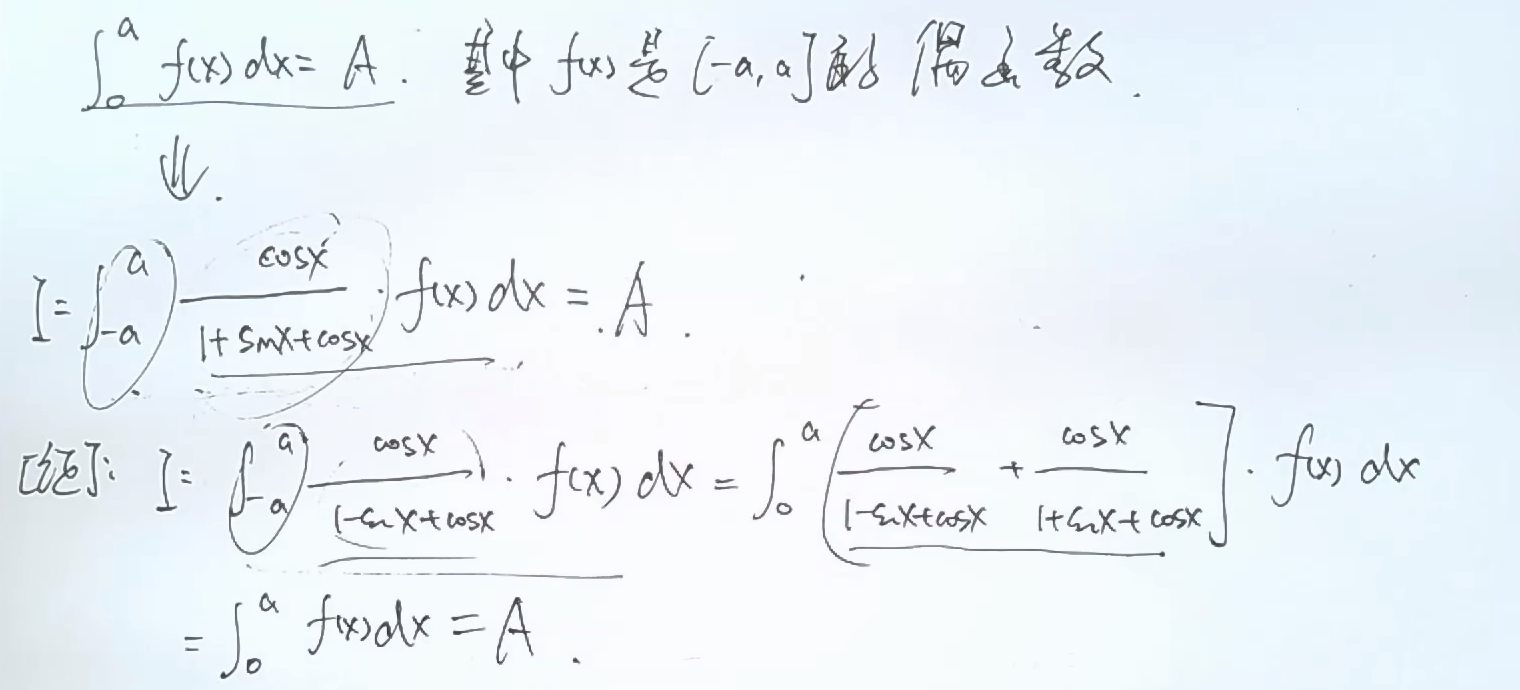 ∫₀ᵃ f(x) dx = A. 其中 f(x) 是 [-a, a] 的 偶函数.
⇓.
I = ∫₋ₐᵃ cosx / (1 + sinx + cosx) · f(x) dx = A.
[证]: I = ∫₋ₐᵃ cosx / (1 - sinx + cosx) · f(x) dx = ∫₀ᵃ [cosx / (1 - sinx + cosx) + cosx / (1 + sinx + cosx)] · f(x) dx
= ∫₀ᵃ f(x) dx = A.